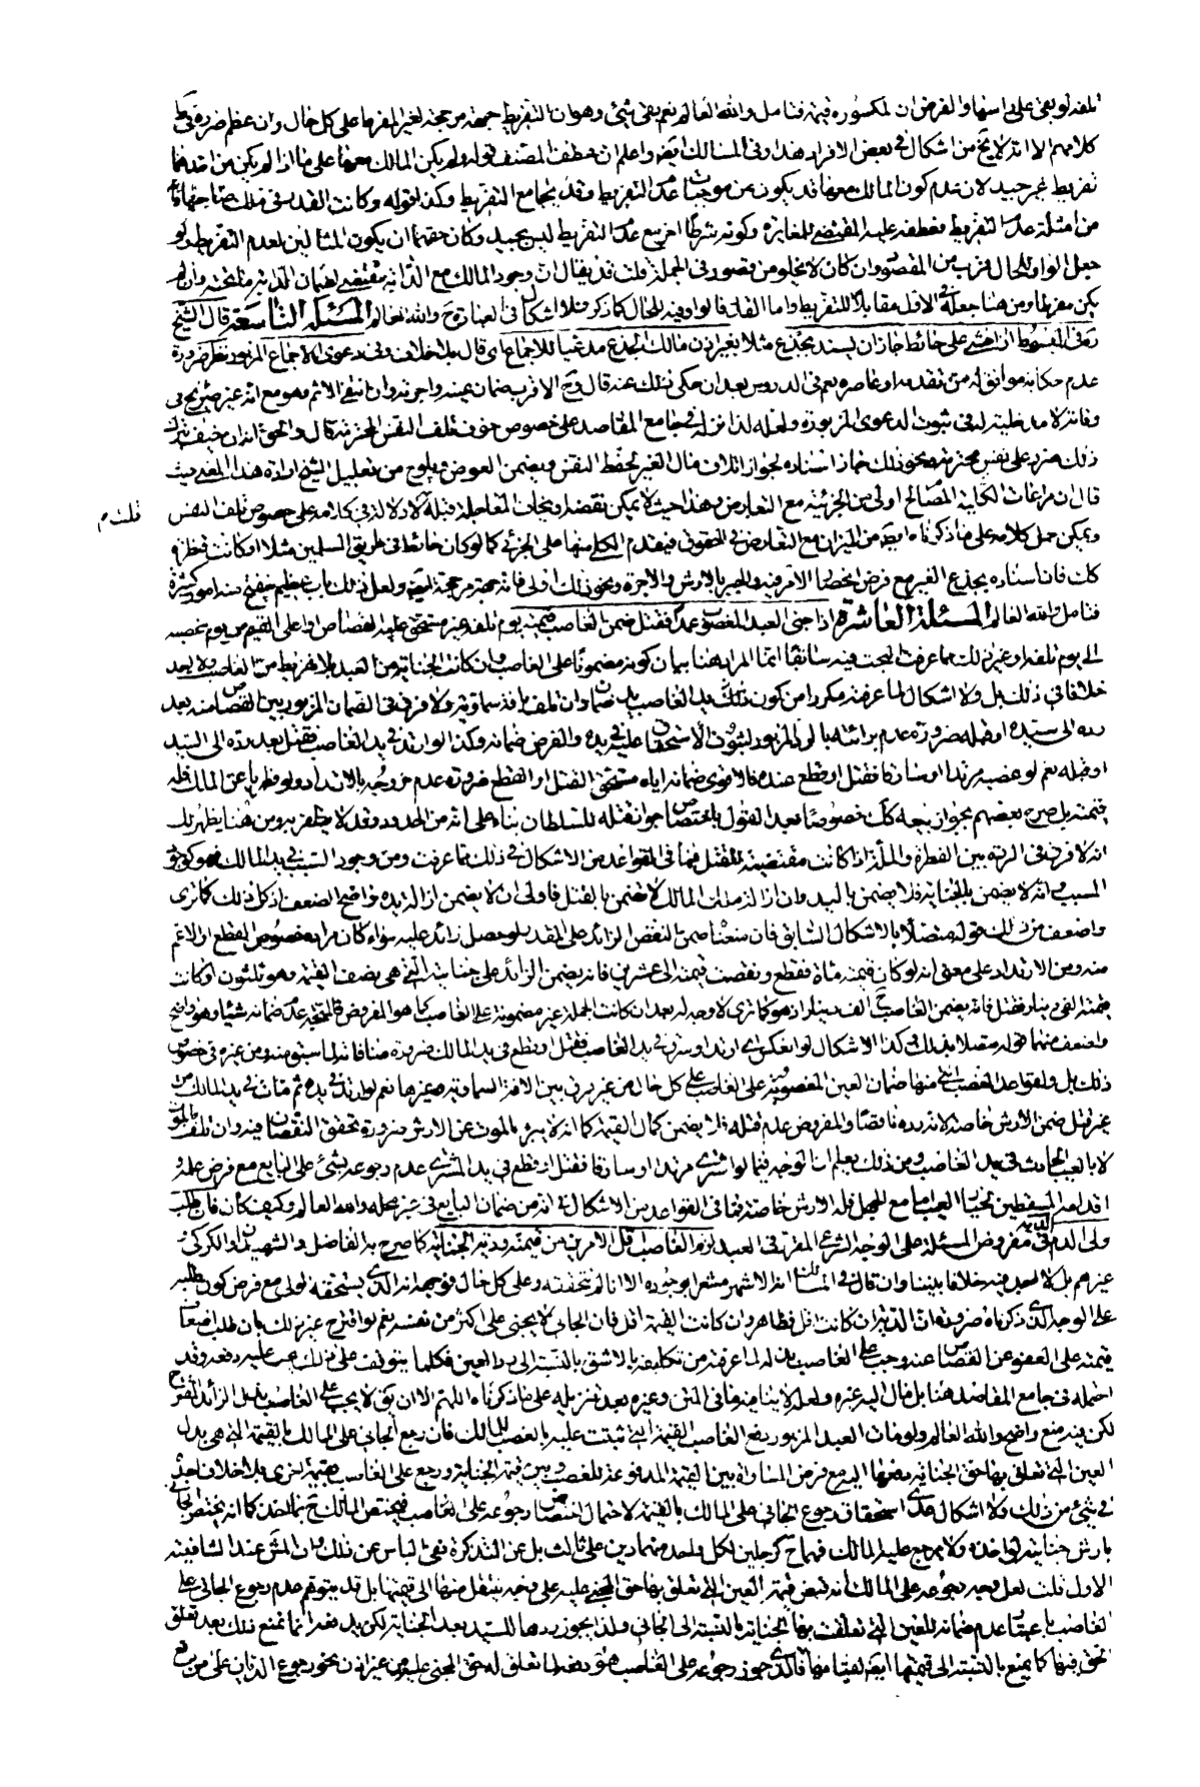 تلفه لو بقي على راسها والفرض ان لمكسوره قيمة فتامل والله العالم نعم بقي شيء وهو ان التفريط جهة مرجحة لغير المفرط على كل حال وان عظم ضرره في
كلامهم الا انه لا يخ من اشكال في بعض الافراد هذا وفي المسالك ايضا واعلم ان عطف المصنف قوله ولم يكن المالك معها على ما اذا لم يكن من احدهما
تفريط غير جيد لان عدم كون المالك معها قد يكون من موجبات عدم التفريط وقد يجامع التفريط وكذا قوله وكانت القدر في ملك صاحبها
من امثلة عدم التفريط فعطفه عليه المقتضي للمغايرة وكونه شرطا اخر مع عدم التفريط ليس بجيد وكان حقهما ان يكون المثالين لعدم التفريط ولو
جعل الواو للحال قرب من المقصود وان كان لا يخلو من قصور في الجملة قلت قد يقال ان وجود المالك مع الدابة مقتضي لضمان الدابة ما تجنيه وان لم
يكن مفرطا ومن هنا جعله في الاول مقابلا للتفريط واما القدر قالواو فيه للحال كما ذكر فلا اشكال في العبارة ح والله العالم المسئلة التاسعة قال الشيخ
في المبسوط اذا خشي على حائط جاز ان يسند بجذع مثلا بغير اذن مالك الجذع مدعيا للاجماع اي قال بلا خلاف وفي دعوى الاجماع المزبور نظر ضرورة
عدم حكاية موافق له ممن تقدمه او عاصره نعم في الدروس بعد ان حكى ذلك عنه قال وح الاقرب ضمان عينه واجرته وان انتفى الاثم وهو مع انه غير صريح في
وفاته لا مدخلية له في ثبوت الدعوى المزبورة ولعله لذا نزله في جامع المقاصد على خصوص خوف تلف النفس المحترمة قال والحق انه ان خيف بترك
ذلك ضرر على نفس محترمة ونحو ذلك جاز اسناده لجواز اتلاف مال الغير لحفظ النفس ويضمن العوض ويلوح من تعليل الشيخ ارادة هذا المعنى حيث
قال ان مراعات الكلية المصالح اولى من الجزئية مع التعارض وهذا حيث لا يمكن نقضه او
قلت م
ويمكن حمل كلامه على ما ذكرناه ايضا من الميزان مع التعارض في الحقوق فيقدم الكلي منها على الجزئي كما لو كان حائطا في طريق المسلمين مثلا او كانت قنطرة
كك فان اسناده بجذع الغير مع فرض انحصار الامر فيه والجبر بالارش والاجرة ونحو ذلك اولى فانه جهة مرجحة ايضا ولعل ذلك باب عظيم ينفتح منه امور كثيرة
فتامل والله العالم المسئلة العاشرة اذا جنى العبد المغصوب عمدا فقتل ضمن الغاصب قيمته يوم تلفه غير مستحق عليه القصاص او اعلى القيم من يوم غصبه
الى يوم تلفه او غير ذلك مما عرفت البحث فيه سابقا انما المراد هنا بيان كونه مضمونا على الغاصب وان كانت الجناية من العبد بلا تفريط من الغاصب ولا اجد
خلافا في ذلك بل ولا اشكال لما عرفته مكررا من كون ذلك يد الغاصب يد ضمان وان تلف بافة سماوية ولا فرق في الضمان المزبور بين القصاص منه بعد
رده الى سيده او قبله ضرورة عدم براءته بالرد المزبور لثبوت الاستحقاق عليه في يده والفرض ضمانه وكذا لو ارتد في يد الغاصب فقتل بعد رده الى السيد
او قبله نعم لو غصبه مرتدا او سارقا فقتل او قطع عنده فالاقوى ضمانه اياه مستحق القتل او القطع ضرورة عدم خروجه بالارتداد ولو فطريا عن الملك فله
قيمته بل صرح بعضهم بجواز بيعه كك خصوصا بعد القول باختصاص جواز قتله للسلطان بناء على انه من الحدود وقد لا يظفر به ومن هنا يظهر لك
انه لا فرق في الردة بين الفطرة والملة اذا كانت مقتضية للقتل فما في القواعد من الاشكال في ذلك مما عرفت ومن وجود السبب في يد المالك فهو كوجود
المسبب وانه لا يضمن بالجناية فلا يضمن باليد وان ازالة ملك المالك لا تضمن بالقتل فاولى ان لا يضمن ازالة يده واضح الضعف اذ كل ذلك كما ترى
واضعف من ذلك قوله متصلا بالاشكال السابق فان منعنا ضمن النقص الزائد على المقدر لو حصل زائد عليه سواء كان مراده خصوص القطع او الاعم
منه ومن الارتداد على معنى انه لو كان قيمته مائة فقطع ونقصت قيمته الى عشرين فانه يضمن الزائد على جنايته التي هي نصف القيمة وهو ثلثون او كانت
قيمته الفي دينار فقتل فانه يضمن الغاصب ح الف دينار اذ هو كما ترى لا وجه له بعد ان كانت الجملة غير مضمونة على الغاصب كما هو المفروض فالمتجه عدم ضمانه شيئا وهو واضح
واضعف منهما قوله متصلا بذلك وكذا الاشكال لو انعكس اي ارتد او سرق في يد الغاصب فقتل او قطع في يد المالك ضرورة منافاته لما سبق منه ومن غيره في خصوص
ذلك بل ولقواعد الغصب التي منها ضمان العين المغصوبة على الغاصب على كل حال من غير فرق بين الافة السماوية وغيرها نعم لو ارتد في يده ثم مات في يد المالك من
غير قتل ضمن الارش خاصة لانه رده ناقصا والمفروض عدم قتله فلا يضمن كمال القيمة كما انه لا يبرء بالموت عن الارش ضرورة تحقق النقصان فيه وان تلف بالموت
لا بالعيب الحادث في يد الغاصب ومن ذلك يعلم ان الوجه فيما لو اشترى مرتدا او سارقا فقتل او قطع في يد المشتري عدم رجوعه بشيء على البايع مع فرض علمه و
اقدامه المسقطين لخيار العيب اما مع الجهل فله الارش خاصة فما في القواعد من الاشكال في انه من ضمان البايع في غير محله والله العالم وكيف كان فان طلب
ولي الدم الدية في مفروض المسئلة على الوجه الشرعي المقرر في العبد لزم الغاصب اقل الامرين من قيمته ودية الجناية كما صرح به الفاضل والشهيدان والكركي و
غيرهم بل لا اجد فيه خلافا بيننا وان قال في المسالك انه الاشهر مشعرا بوجوده الا انا لم نتحققه وعلى كل حال فوجهه انه الذي يستحقه الولي مع فرض كون طلبه
على الوجه الذي ذكرناه ضرورة ان الدية ان كانت اقل فظاهر وان كانت القيمة اقل فان الجاني لا يجني على اكثر من نفسه نعم لو اقترح غير ذلك بان طلب اضعاف
قيمته على العفو عن القصاص عنه وجب على الغاصب بذله لما عرفته من تكليفه بالاشق بالنسبة الى رد العين فكلما يتوقف على ذلك يجب عليه دفعه وقد
احتمله في جامع المقاصد هنا بل مال اليه غيره ولعله لا ينافيه ما في المتن وغيره بعد تنزيله على ما ذكرناه اللهم الا ان يق لا يجب على الغاصب بذل الزائد المقترح
لكن فيه منع واضح والله العالم ولو مات العبد المزبور دفع الغاصب القيمة التي ثبتت عليه بالغصب للمالك فان رجع الجاني على المالك بالقيمة التي هي بدل
العين التي تعلق بها حق الجناية
في شيء من ذلك ولا اشكال عندي
بارش جنايته التي اخذه ولا يرجع عليه المالك فهما ح كرجلين لكل واحد منهما دين على ثالث بل عن التذكرة نفي الباس عن ذلك وان المش عند الشافعية
الاول قلت لعل وجه رجوعه على المالك انه قبض قيمة العين التي تعلق بها حق المجني عليه على وجه ينتقل منها الى قيمتها بل قد يتوهم عدم رجوع الجاني على
الغاصب باعتبار عدم ضمانه للعين التي تعلقت بها الجناية بالنسبة الى الجاني ولذا يجوز ردها للسيد بعد الجناية لكن يدفعه انما يمنع ذلك بعد تعلق
الحق فيها كما يمنع بالنسبة الى قيمتها ايضا لقيامها مقامها فالذي جوز رجوعه على الغاصب هو